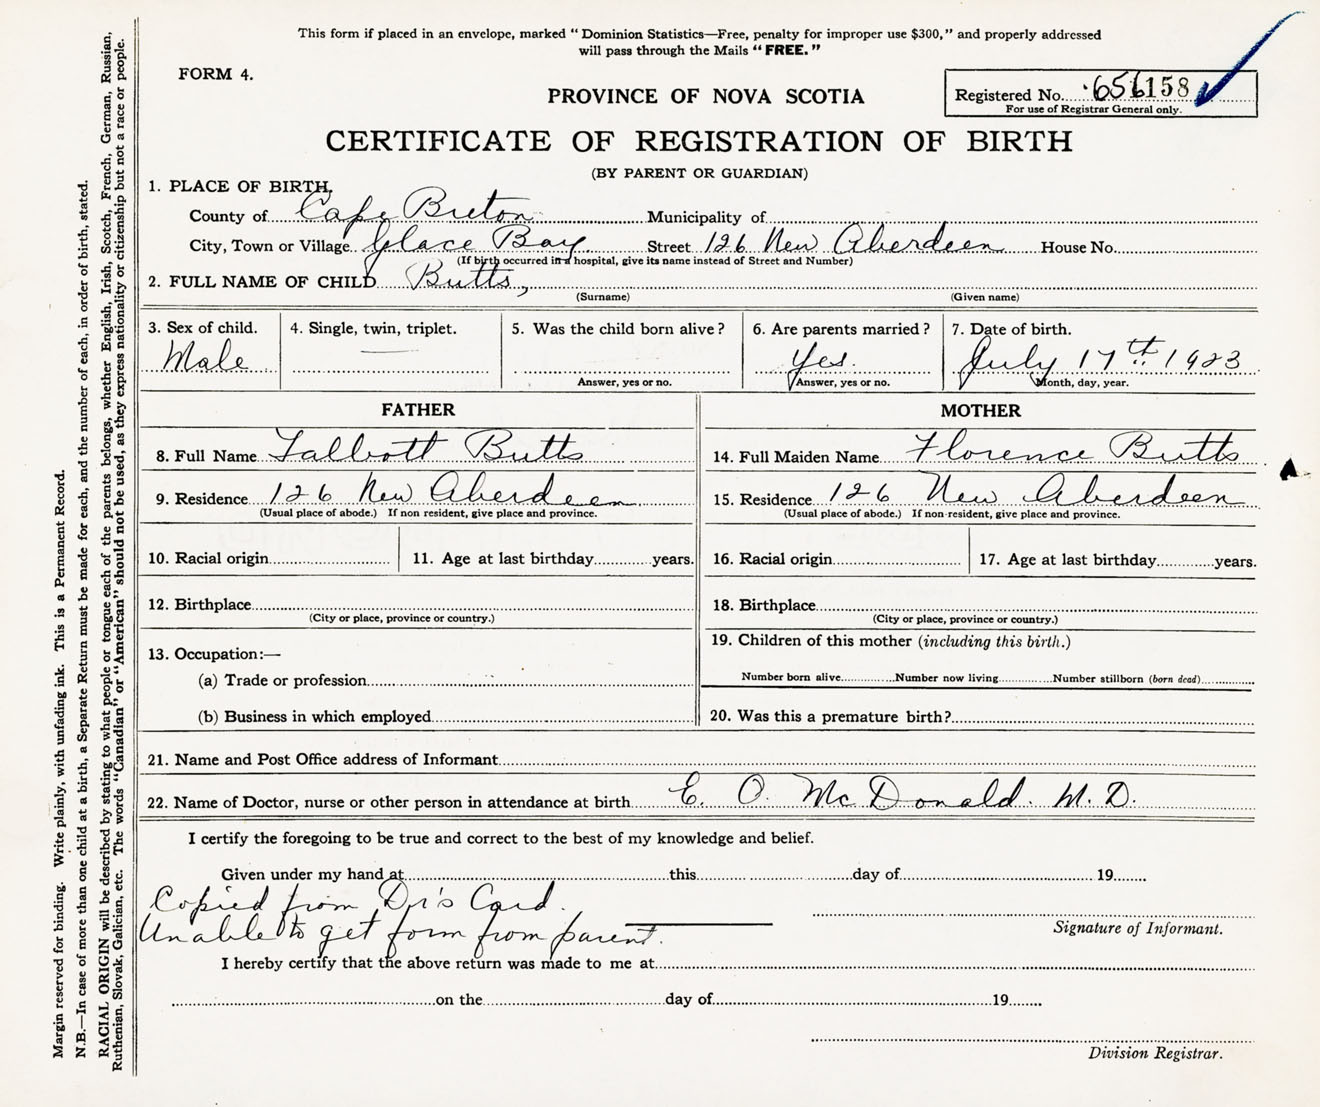 This form if placed in an envelope, marked “ Dominion Statistics—Free, penalty for improper use $300,” and properly addressed
will pass through the Mails “ FREE. ”
FORM 4.
Registered No. 656158
For use of Registrar General only.
PROVINCE OF NOVA SCOTIA
CERTIFICATE OF REGISTRATION OF BIRTH
(BY PARENT OR GUARDIAN)
1. PLACE OF BIRTH,
County of Cape Breton Municipality of
City, Town or Village Glace Bay Street 126 New Aberdeen House No.
(If birth occurred in a hospital, give its name instead of Street and Number)
2. FULL NAME OF CHILD Butts,
(Surname) (Given name)
3. Sex of child. 4. Single, twin, triplet. 5. Was the child born alive? 6. Are parents married? 7. Date of birth.
Male — Yes. July 17th 1923
Answer, yes or no. Answer, yes or no. Month, day, year.
FATHER MOTHER
8. Full Name Talbott Butts 14. Full Maiden Name Florence Butts
9. Residence 126 New Aberdeen 15. Residence 126 New Aberdeen
(Usual place of abode.) If non resident, give place and province. (Usual place of abode.) If non-resident, give place and province.
10. Racial origin 11. Age at last birthday years. 16. Racial origin 17. Age at last birthday years.
12. Birthplace 18. Birthplace
(City or place, province or country.) (City or place, province or country.)
19. Children of this mother (including this birth.)
13. Occupation:—
(a) Trade or profession Number born alive Number now living Number stillborn (born dead)
(b) Business in which employed 20. Was this a premature birth?
21. Name and Post Office address of Informant
22. Name of Doctor, nurse or other person in attendance at birth E. O. McDonald. M. D.
I certify the foregoing to be true and correct to the best of my knowledge and belief.
Given under my hand at this day of 19
Copied from Dr's Card.
Unable to get form from parent.
Signature of Informant.
I hereby certify that the above return was made to me at
on the day of 19
Division Registrar.
Margin reserved for binding. Write plainly, with unfading ink. This is a Permanent Record.
N.B.—In case of more than one child at a birth, a Separate Return must be made for each, and the number of each, in order of birth, stated.
RACIAL ORIGIN will be described by stating to what people or tongue each of the parents belongs, whether English, Irish, Scotch, French, German, Russian,
Ruthenian, Slovak, Galician, etc. The words “Canadian” or “American” should not be used, as they express nationality or citizenship but not a race or people.